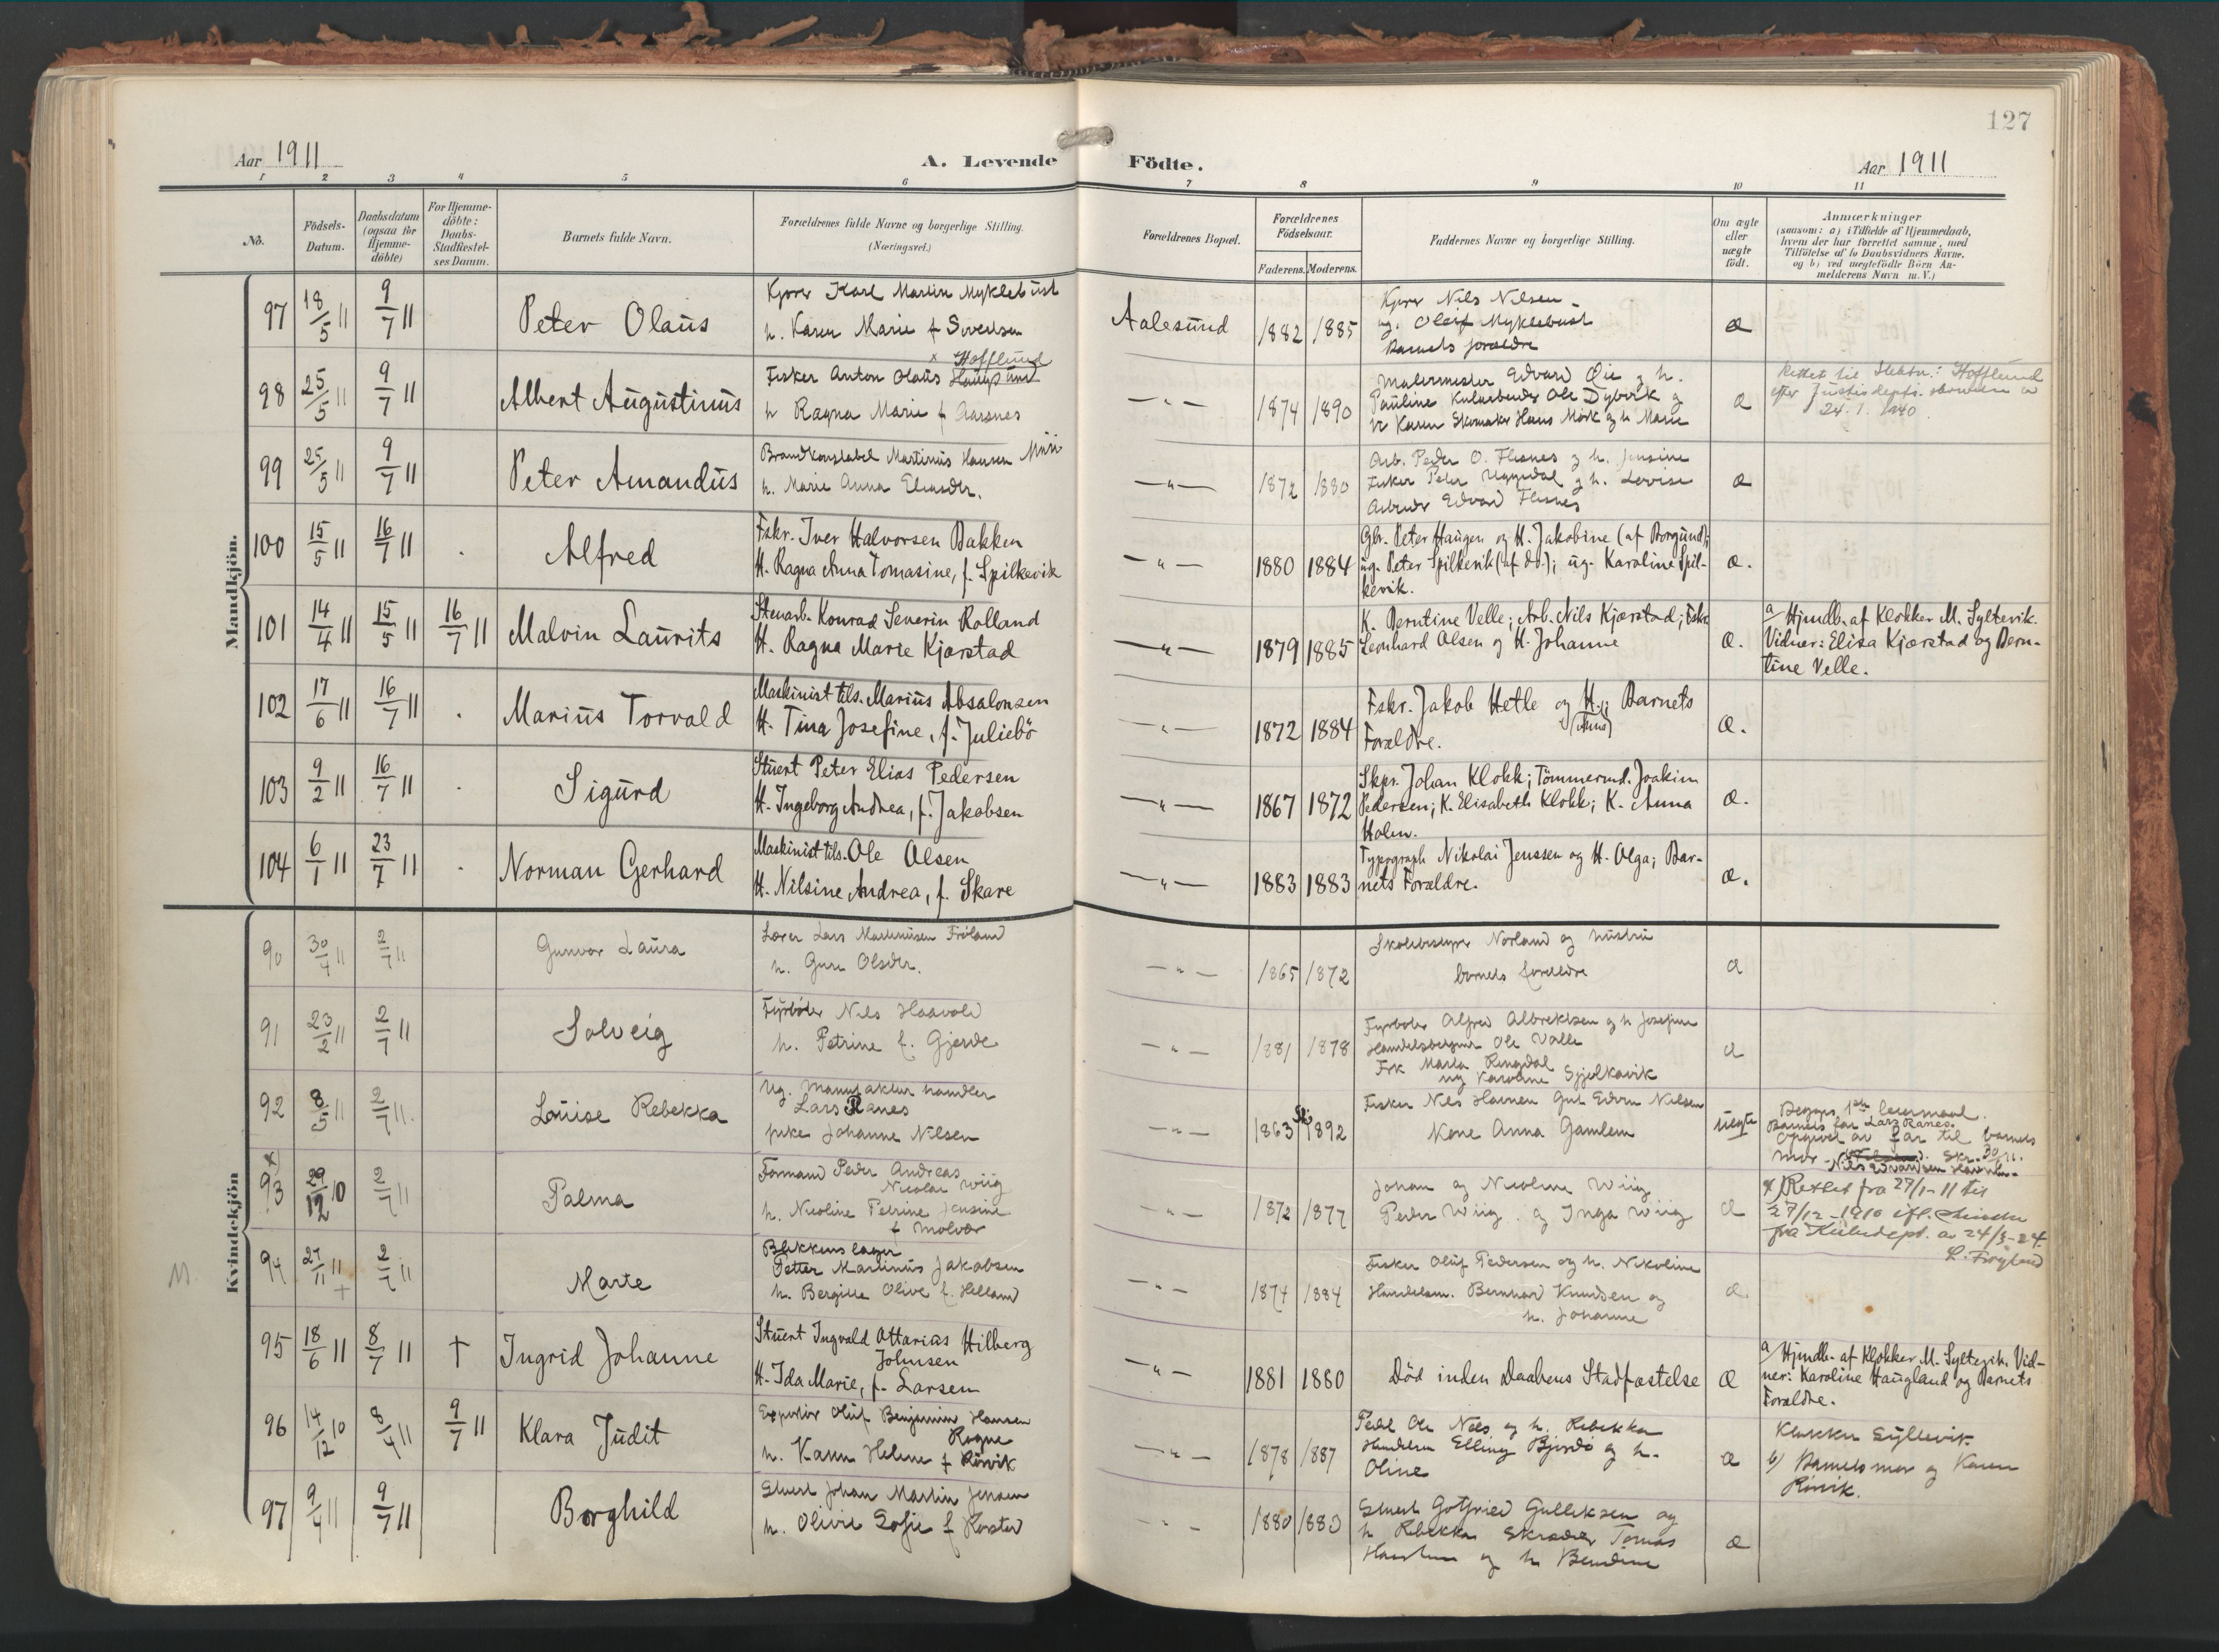 127
Aar 1911
A. Levende Födte.
Aar 1911
1 2 3 4 5 6 7 8 9 10 11
No.
Födsels-Datum.
Daabsdatum (ogsaa for Hjemme-döbte)
For Hjemme-döbte: Daabs-Stadfæstel-ses Datum.
Barnets fulde Navn.
Forældrenes fulde Navne og borgerlige Stilling. (Næringsvei.)
Forældrenes Bopæl.
Forældrenes Födselsaar.
Faderens. Moderens.
Faddernes Navne og borgerlige Stilling.
Om ægte eller uægte födt.
Anmærkninger
(saasom: a) i Tilfælde af Hjemmedaab,
hvem der har forrettet samme, med
Tilföielse af to Daabsvidners Navne.
og b) ved uægtefödte Börn An-
melderens Navn m. V.)
Mandkjön.
97 18/5 11 9/7 11 Peter Olaus
Kjører Karl Martin Myklebust
h. Karen Marie f Sivertsen
Aalesund 1882 1885
Kjører Nils Nilsen
ug. Oleif Myklebust
Barnets forældre
æ
98 25/5 11 9/7 11 Albert Augustinus
x Hofflund
Fisker Anton Olaus
h Ragna Marie f Aarsnes
— " — 1874 1890
Malermester Edvard Øie og h.
Pauline Ole Dybvik og
Karen Skomaker Hans Mork og h Marie
æ
Rettet til Slektsn.: Hofflund
efter Justisdepts. skrivelse av
24.1.1940.
99 25/5 11 9/7 11 Peter Amandus
Brandkonstabel Martinus Hansen
h. Marie Anna Eliasdtr.
— " — 1872 1880
Arb. Peder O. Flisnes og h. Jensine
Fisker Peter Uggedal og h. Lovise
Arbeider Edvard Flisnes
æ
100 15/5 11 16/7 11 . Alfred
Fskr. Iver Halvorsen Bakken
H. Ragna Anna Tomasine, f. Spilkevik
— " — 1880 1884
Gbr. Peter Haugen og H. Jakobine (af Borgund);
ug. Peter Spilkevik (af do.); ug. Karoline Spil-
kevik.
æ.
101 14/4 11 15/5 11 16/7 11 Malvin Laurits
Stenarb. Konrad Severin Rolland
H. Ragna Marie Kjærstad
— " — 1879 1885
K. Berntine Velle; Arb. Nils Kjærstad; Fskr.
Leonhard Olsen og H. Johanne
æ.
a/ Hjmdb. af Klokker M. Syltevik.
Vidner: Elisa Kjærstad og Bern-
tine Velle.
102 17/6 11 16/7 11 . Marius Torvald
Maskinist tils. Marius Absalonsen
H. Tina Josefine, f. Juliebö
— " — 1872 1884
Fskr. Jakob Hetle og H. (Anna); Barnets
Forældre.
æ.
103 9/2 11 16/7 11 . Sigurd
Stuert Peter Elias Pedersen
H. Ingeborg Andrea, f. Jakobsen
— " — 1867 1872
Skpr. Johan Klokk; Tömmermd. Joakim
Pedersen; K. Elisabeth Klokk; K. Anna
Holm.
æ.
104 6/1 11 23/7 11 . Norman Gerhard
Maskinist tils. Ole Olsen
H. Nilsine Andrea, f. Skare
— " — 1883 1883
Typograph Nikolai Jenssen og H. Olga; Bar-
nets Forældre.
æ.
Kvindekjön
90 30/4 11 2/7 11 Gunvor Laura
Lærer Lars Martinusen Fröland
h. Guri Olsdtr.
— " — 1865 1872
Skolebestyrer Norland og hustru
barnets forældre
æ
91 23/2 11 2/7 11 Solveig
Fyrböder Nils Haavold
h. Petrine f. Gjerde
— " — 1881 1878
Fyrböder Alfred Albrektsen og h Josefine
Ole Valle
Frk Marta Ringdal
ug Karoline Spjelkavik
æ
92 8/5 11 2/7 11. Louise Rebekka
Ug. Manufakturhandler
Lars Ranes
pike Johanne Nilsen
— " — 1863 1892
Fisker Nils Gurl Edvin Nilsen
Kone Anna Gamlem
uægte
Begges 1ste leiermaal.
Barnets far Lars Ranes.
Opgivet av far til barnets
mor
x)
93 29/12 10 2/7 11 Palma
Formand Peder Andreas
Nicolai Wiig
h. Nicoline Petrine Jensine
f Molvær
— " — 1872 1877
Johan og Nicoline Wiig
Peder Wiig og Inga Wiig
æ
x) Rettet fra 27/1-11 til
27/12-1910 ifl. skrivelse
fra Kirkedept. av 24/3-24.
94 27/11 11 2/7 11 Marie
Blikkenslager
Petter Martinus Jakobsen
h. Bergitte Olive f. Helland
— " — 1874 1884
Fisker Oluf Pedersen og h. Nikoline
Handelsm. Bernhard Knudsen og
h. Johanne
æ.
95 18/6 11 8/7 11 † Ingrid Johanne
Stuert Ingvald Attarias Hilberg
Johnsen
H. Ida Marie, f. Larsen
— " — 1881 1880
Död inden Daabens Stadfæstelse
æ
a/ Hjmdb. af Klokker M. Syltevik. Vid-
ner: Karoline Haugland og Barnets
Forældre.
96 14/12 10 8/4 11 9/7 11 Klara Judit
Exportör Oluf Benjamin Hansen
Rogne
h. Karen Helene f Rörvik
— " — 1878 1887
Ole Nees og h. Rebekka
Elling Bjørdö og h.
Oline
æ
Klokker Syltevik
b) Barnets mor og Karen
Rörvik.
97 9/4 11 9/7 11 Borghild
Stuert Johan Martin Jensen
h. Olivie Sofie f Korstad
— " — 1880 1880
Stuert Gotfried Gulliksen og
h Rebekka Skræder Tomas
og h Berdine
æ